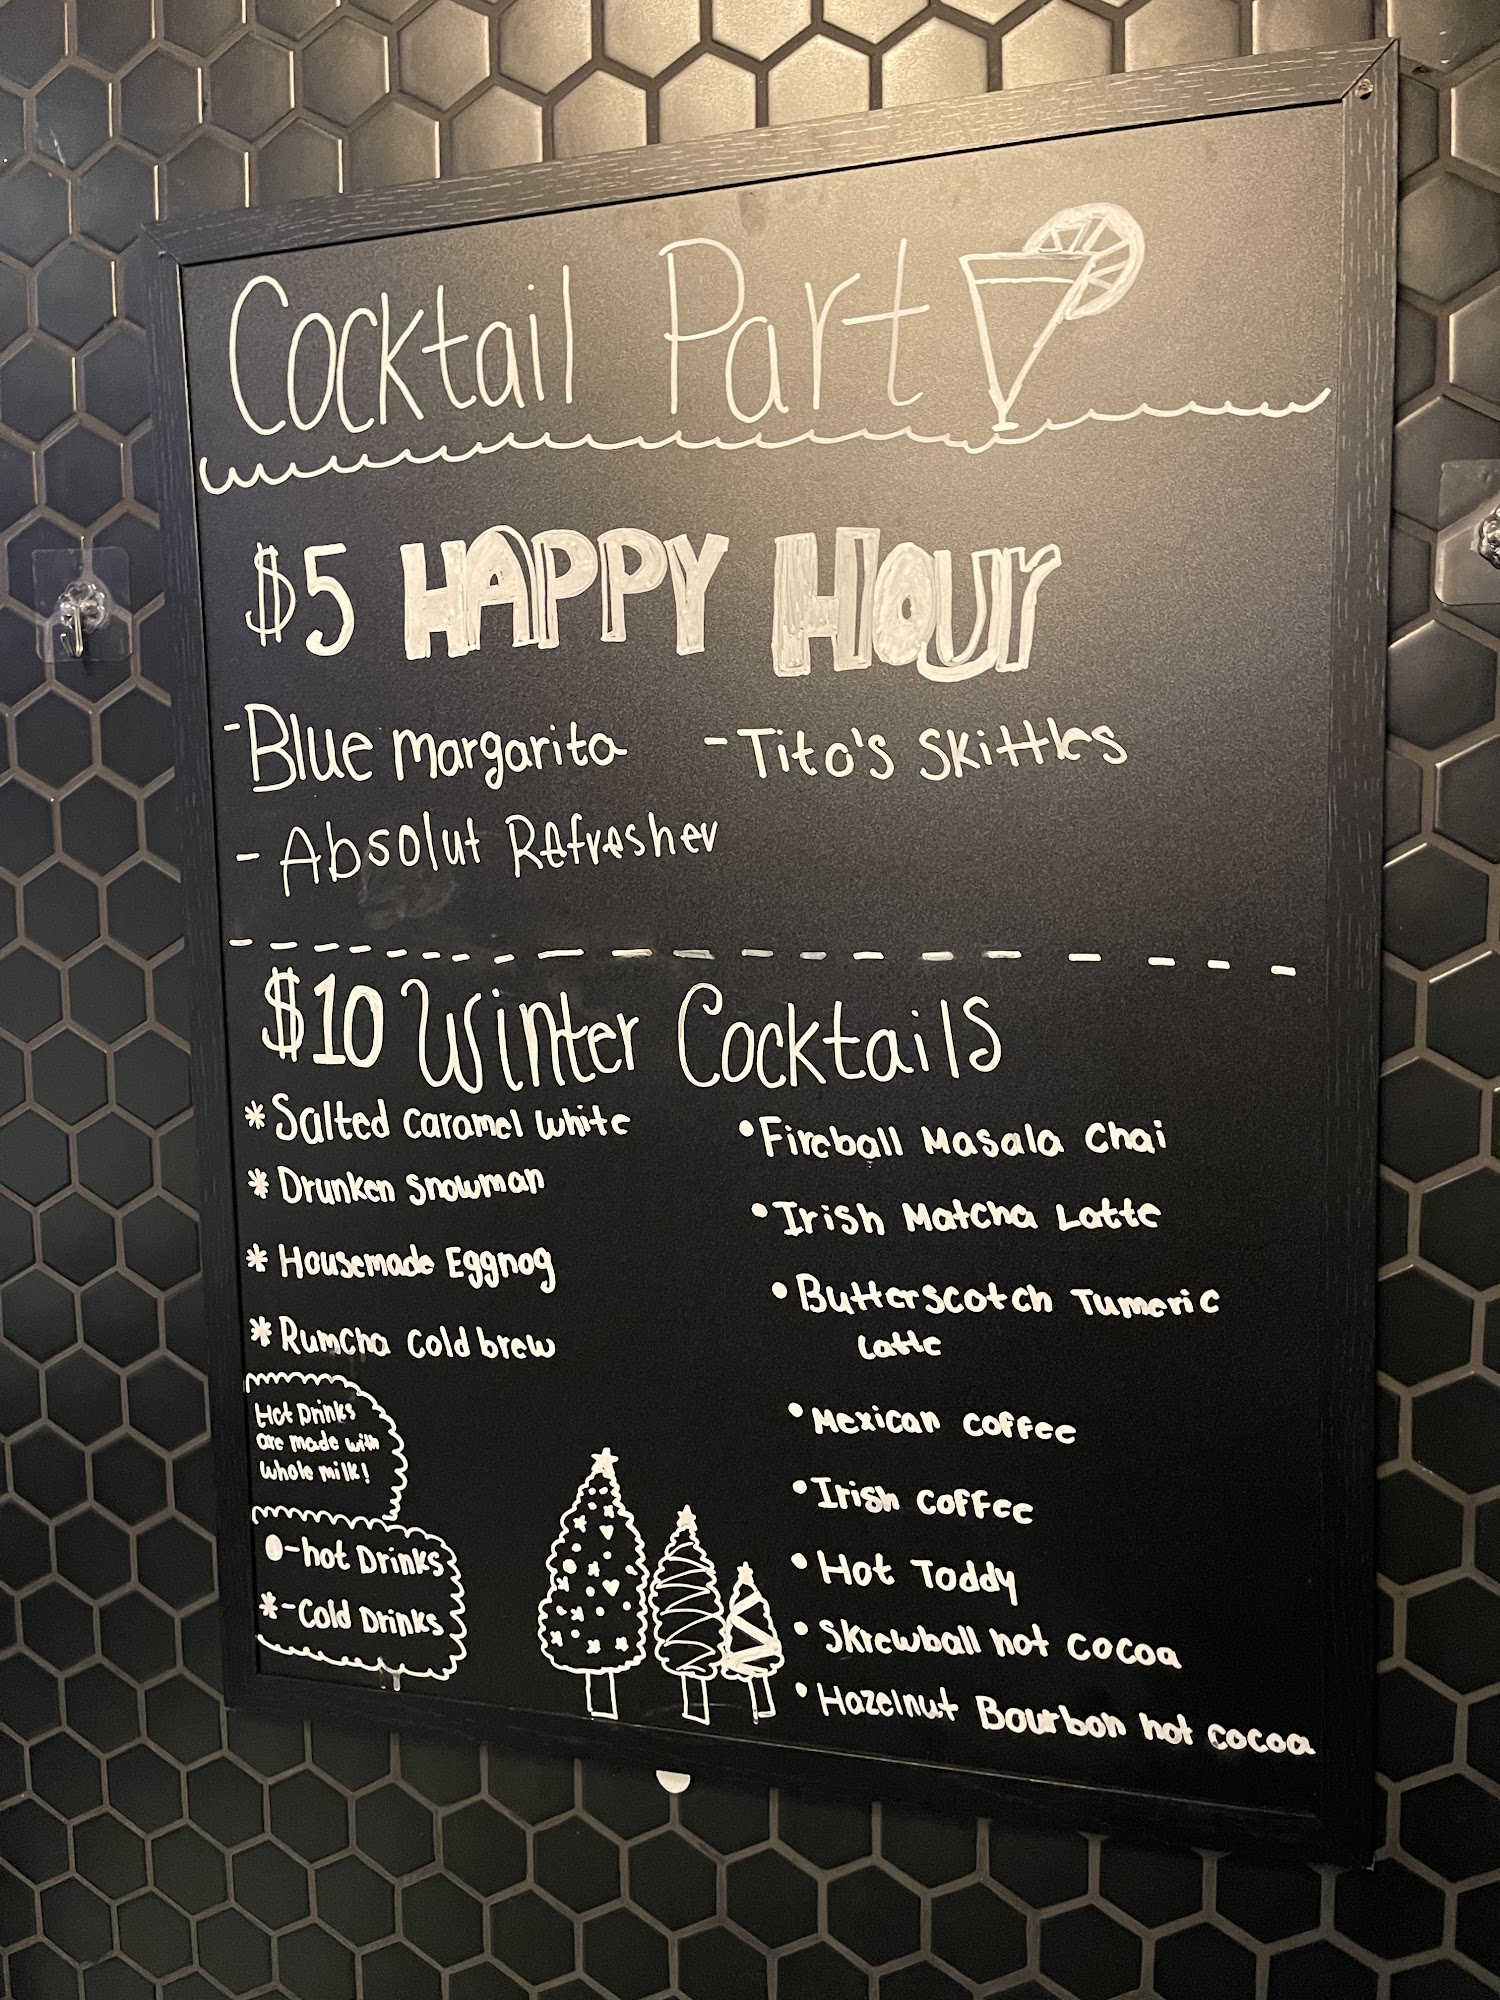 Cocktail Part
$5 HAPPY HOUr
-Blue margarita
-Tito's Skittles
- Absolut Refresher
$10 Winter Cocktails
* Salted Caramel White
* Drunken Snowman
* Housemade Eggnog
* Rumcha Cold brew
• Fireball Masala Chai
• Irish Matcha Latte
• Butterscotch Tumeric
Latte
• Mexican Coffee
• Irish Coffee
• Hot Toddy
• Skrewball hot cocoa
• Hazelnut Bourbon hot cocoa
Hot Drinks
are made with
whole milk!
•-hot Drinks
*-Cold Drinks